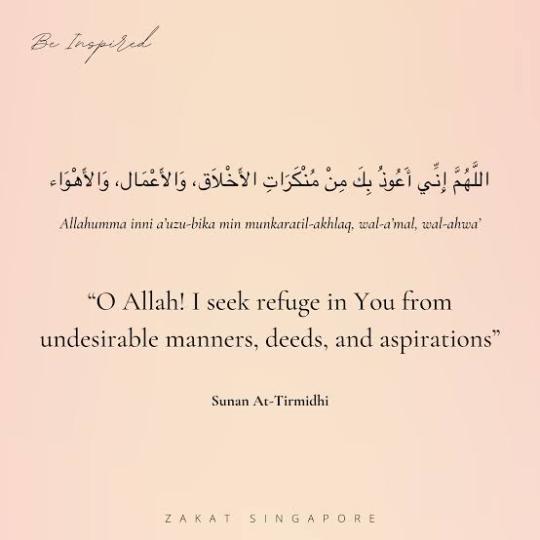 Be Inspired
اللَّهُمَّ إِنِّي أَعُوذُ بِكَ مِنْ مُنْكَرَاتِ الأَخْلَاقِ، وَالأَعْمَالِ، وَالأَهْوَاء
Allahumma inni a'uzu-bika min munkaratil-akhlaq, wal-a'mal, wal-ahwa'
“O Allah! I seek refuge in You from
undesirable manners, deeds, and aspirations”
Sunan At-Tirmidhi
ZAKAT SINGAPORE